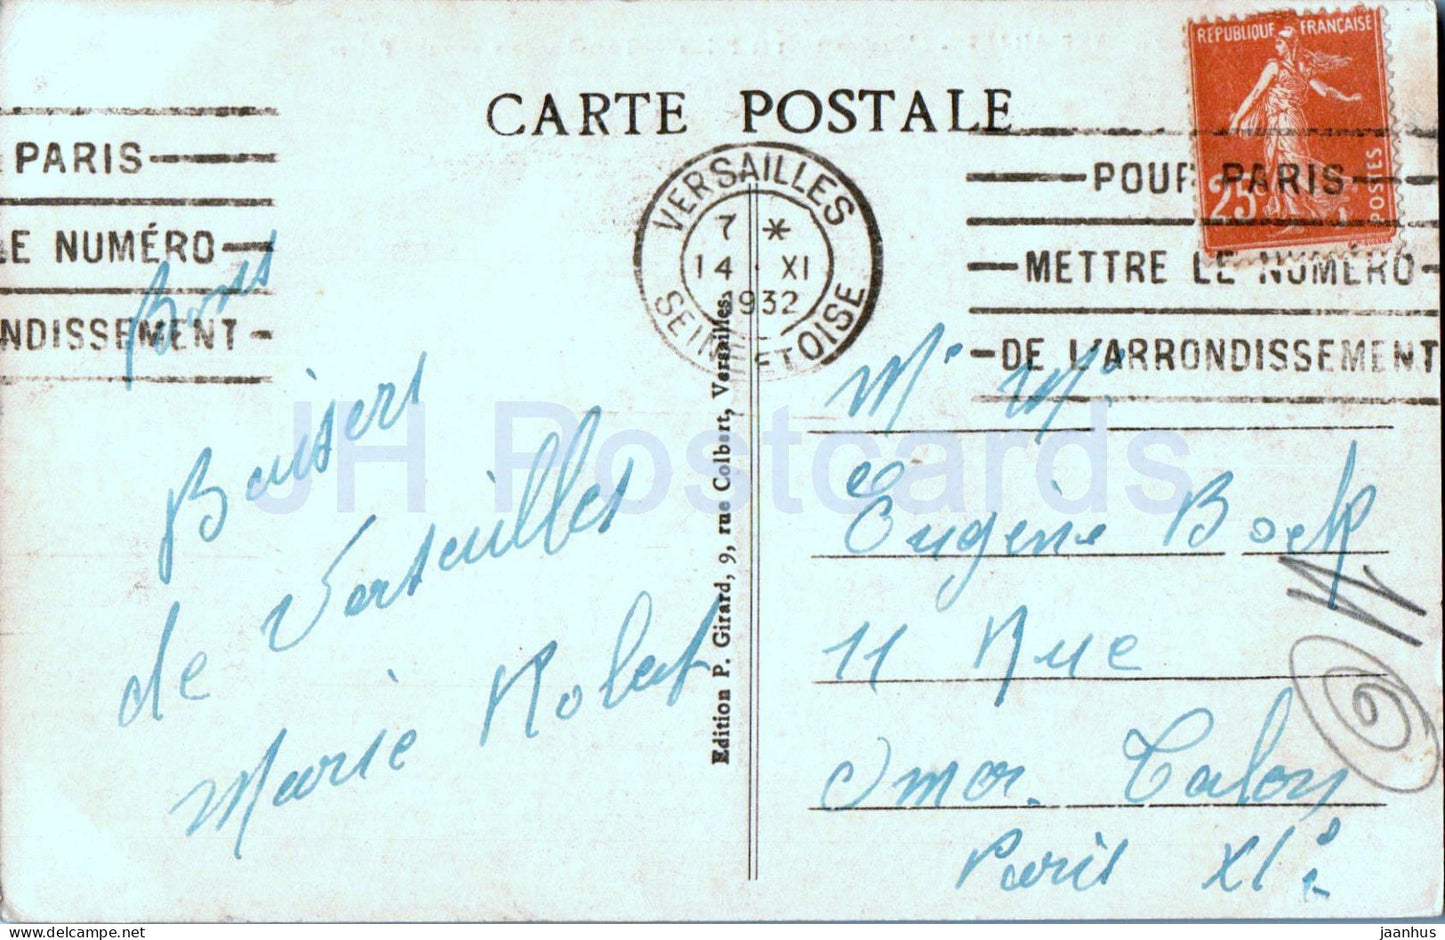 CARTE POSTALE
REPUBLIQUE FRANÇAISE
25c
POSTES
PARIS
LE NUMÉRO
NDISSEMENT
VERSAILLES
7 *
14 XI
1932
SEINE ET OISE
POUR PARIS
METTRE LE NUMÉRO
DE L'ARRONDISSEMENT
Bons
Baisers
de Versailles
Marie Robert
Edition P. Girard, 9, rue Colbert, Versailles.
Mr Mr
Eugène Bock
11 Rue
Omer Talon
Paris XIe
JH Postcards
jaanhus